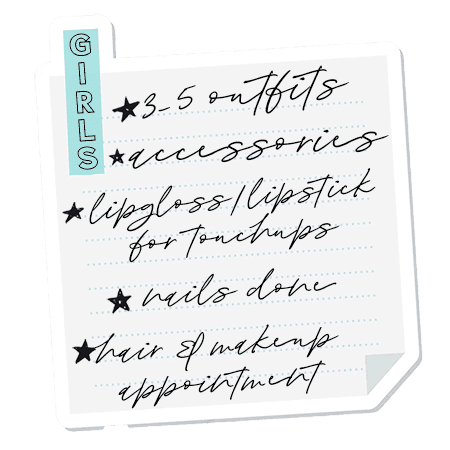 GIRLS
★3-5 outfits
★accessories
★lipgloss/lipstick
for touchups
★nails done
★hair & makeup
appointment